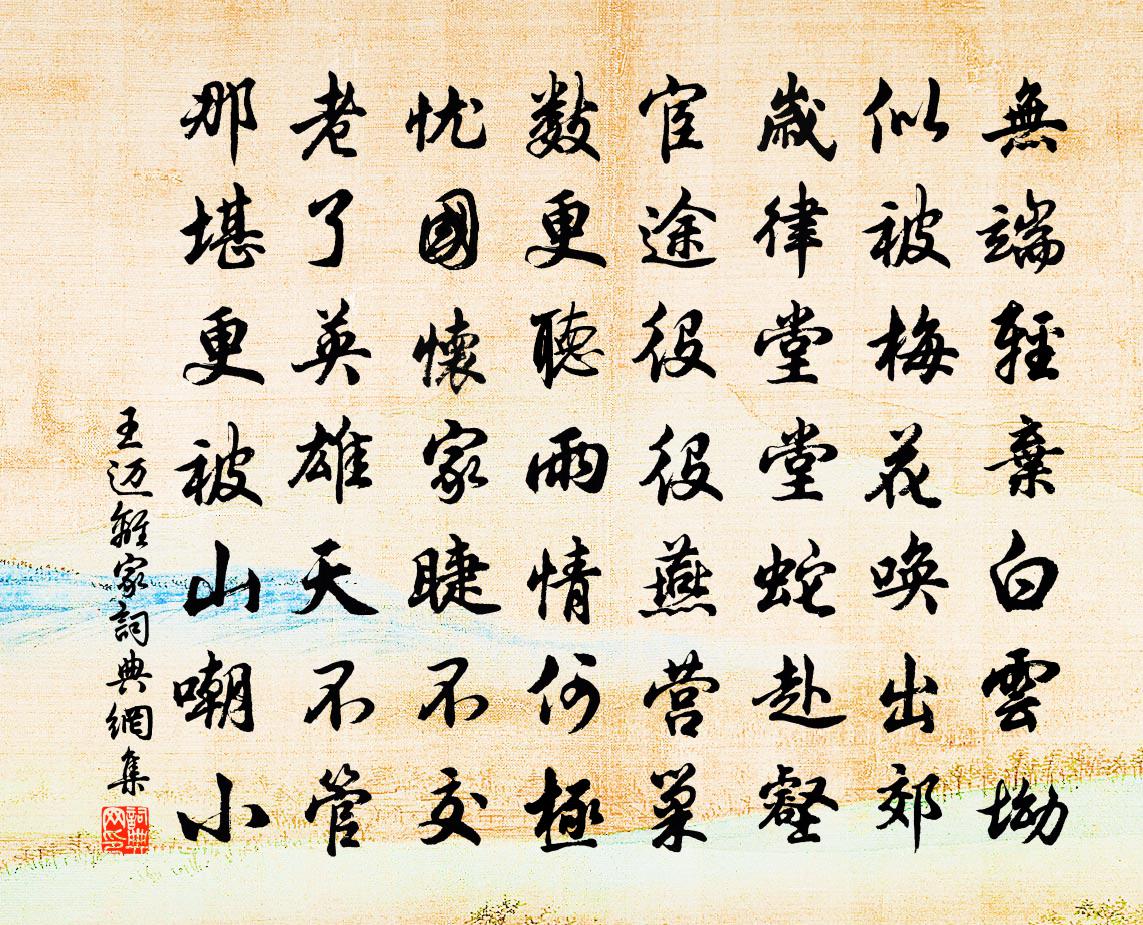 無端輕棄白雲坳
似被梅花喚出郊
歲律堂堂蛇赴壑
宦途役役燕營巢
數更聽雨情何極
忧國懷家睫不交
老了英雄天不管
那堪更被山嘲小
王迈離家詞典網集
詞典网印